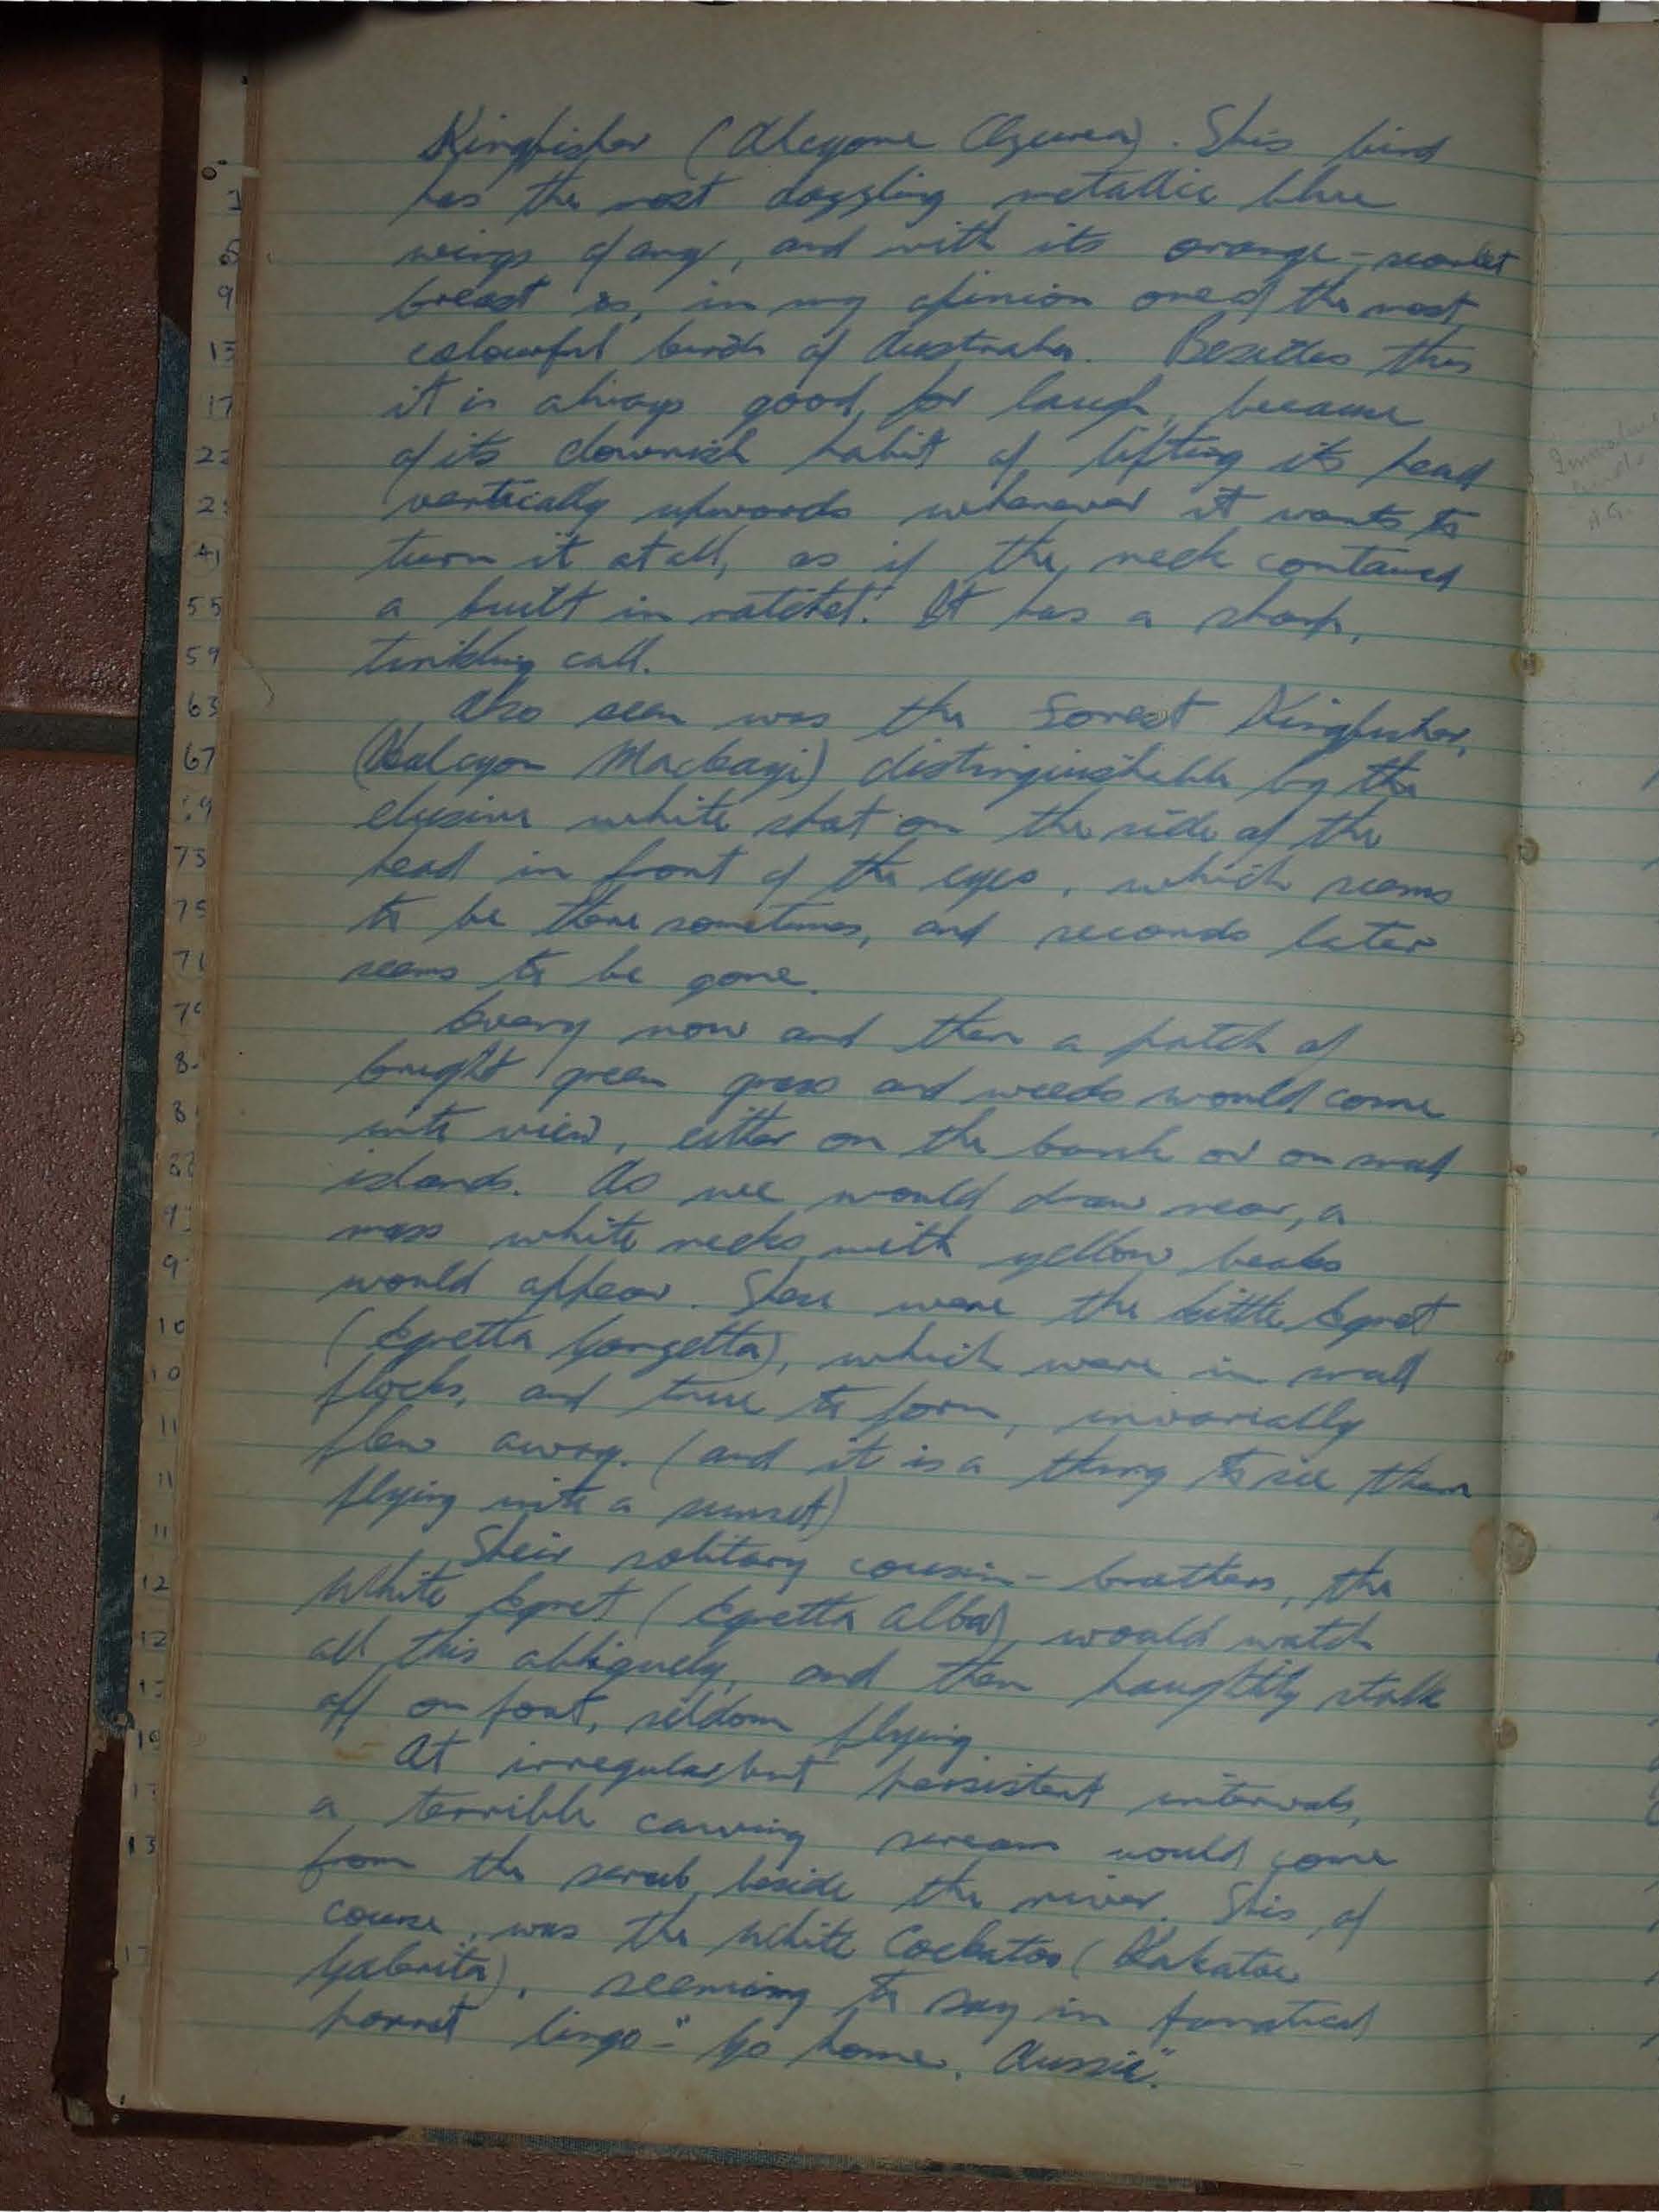 Kingfisher (Alcyone Azurea). This bird
has the most dazzling metallic blue
wings of any, and with its orange-scarlet
breast is, in my opinion one of the most
colourful birds of Australia. Besides this
it is always good for laugh, because
of its clownish habit of lifting its head
vertically upwards whenever it wants to
turn it at all, as if the neck contained
a built in ratchet! It has a sharp,
tinkling call.
Also seen was the Forest Kingfisher,
(Halcyon Macleayi) distinguishable by the
elusive white spot on the side of the
head in front of the eyes, which seems
to be there sometimes, and seconds later
seems to be gone.
Every now and then a patch of
bright green grass and weeds would come
into view, either on the bank or on small
islands. As we would draw near, a
mass white necks with yellow beaks
would appear. These were the Little Egret
(Egretta Garzetta), which were in small
flocks, and true to form, invariably
flew away. (and it is a thing to see them
flying into a sunset)
Their solitary cousin-brothers, the
White Egret (Egretta Alba) would watch
all this obliquely, and then haughtily stalk
off on foot, seldom flying
At irregular but persistent intervals,
a terrible cawing scream would come
from the scrub beside the river. This of
course, was the White Cockatoo (Kakatoe
Galerita), seeming to say in fanatical
parrot lingo - "Go home, Aussie".